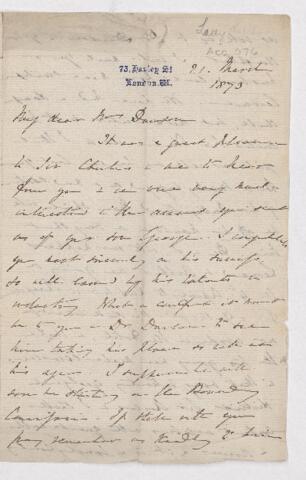 Lady
ACC. 976
73, Harley St
London. W.
21. March
1873
My dear Mr Dawson
It was a great pleasure
to Sir Charles & me to hear
from you & we were very much
interested in the account you sent
us of your son George. I congratulate
you most sincerely on his success
so well earned by his talents &
industry. What a comfort it must
be to you & Dr Dawson to see
him taking his place so
his age. I suppose he will
soon be starting on the Boundary
Commission. If still with you
pray remember us kindly to him